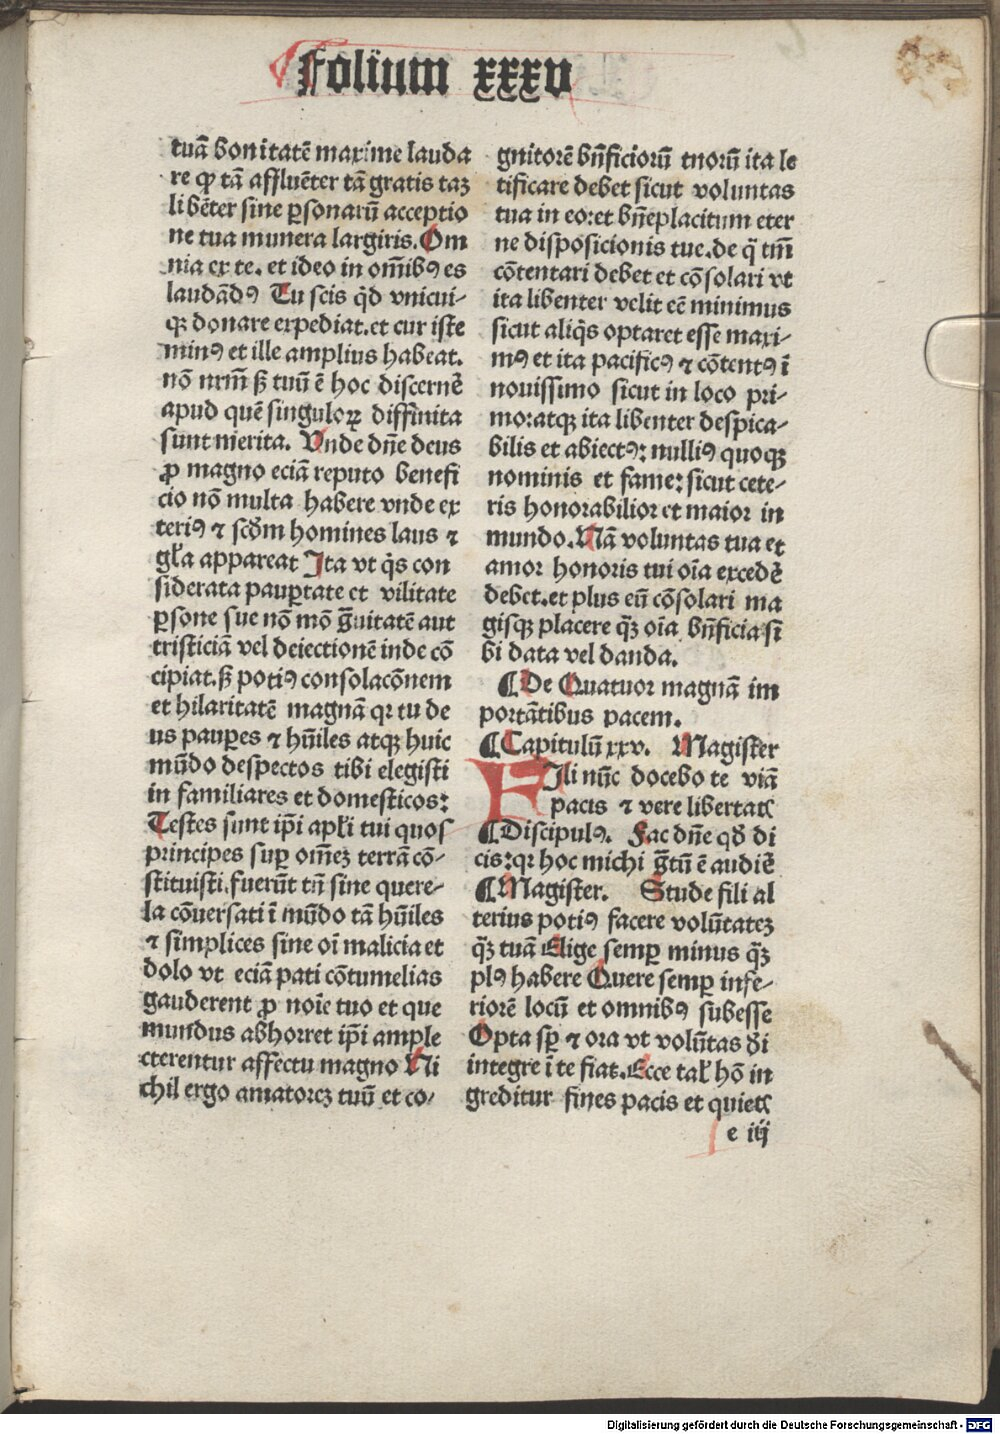 Folium xxxv
tuā bonitatē maxime lauda
re ꝙ tā affluēter tā gratis taꝫ
libēter sine ꝑsonarū acceptio
ne tua munera largiris. Om
nia ex te. et ideo in om̄ibꝰ es
laudādꝰ Tu scis q̇d vnicui⸗
qꝫ donare expediat. et cur iste
minꝰ et ille amplius habeat.
nō nrm̄ sꝫ tuū ē hoc discernē
apud quē singuloꝝ diffinita
sunt merita. Vnde dn̄e deus
ꝓ magno eciā reputo benefi
cio nō multa habere vnde ex
teriꝰ ⁊ scd̄m homines laus ⁊
gl̄a appareat Ita vt q̇s con
siderata pauꝑtate et vilitate
ꝑsone sue nō mō g̅uitatē aut
tristiciā vel deiectionē inde cō
cipiat. sꝫ potiꝰ consolacōnem
et hilaritatē magnā qꝛ tu de
us pauꝑes ⁊ hūiles atqꝫ huic
mūdo despectos tibi elegisti
in familiares et domesticos:
Testes sunt ip̄i apl̄i tui quos
principes suꝑ om̄eꝫ terrā cō⸗
stituisti. fuerūt tn̄ sine quere⸗
la cōuersati ī mūdo tā hūiles
⁊ simplices sine oī malicia et
dolo vt eciā pati cōtumelias
gauderent ꝓ noīe tuo et que
mundus abhorret ip̄i ample
cterentur affectu magno Ni
chil ergo amatoreꝫ tuū et co⸗
gnitorē bn̄ficioꝛū tuoꝛū ita le
tificare debet sicut voluntas
tua in eo: et bn̄eplacitum eter
ne disposicionis tue. de q̄ tm̄
cōtentari debet et cōsolari vt
ita libenter velit eē minimus
sicut aliq̇s optaret esse maxi⸗
mꝰ et ita pacificꝰ ⁊ cōtentꝰ ī
nouissimo sicut in loco pri⸗
mo: atqꝫ ita libenter despica⸗
bilis et abiectꝰ: nulliꝰ quoqꝫ
nominis et fame: sicut cete⸗
ris honorabilior et maior in
mundo. Nā voluntas tua et
amoꝛ honoris tui oīa excedē
debet. et plus eū cōsolari ma
gisqꝫ placere qꝫ̄ oīa bn̄ficia si
bi data vel danda.
¶ De Quatuor magnā im
portātibus pacem.
¶ Capitulū xxv. Magister
FIli nūc docebo te viā
pacis ⁊ vere libertatꝭ
¶ Discipulꝰ. Fac dn̄e qd̄ di
cis: qꝛ hoc michi g̅tū ē audiē
¶ Magister. Stude fili al
terius potiꝰ facere volūtateꝫ
qꝫ̄ tuā Elige semꝑ minus qꝫ̄
plꝰ habere Quere semꝑ infe⸗
riorē locū et omnibꝰ subesse
Opta sꝑ ⁊ ora vt volūtas d̄i
integre ī te fiat. Ecce tal̄ hō in
greditur fines pacis et quietꝭ
e iij
Digitalisierung gefördert durch die Deutsche Forschungsgemeinschaft - DFG